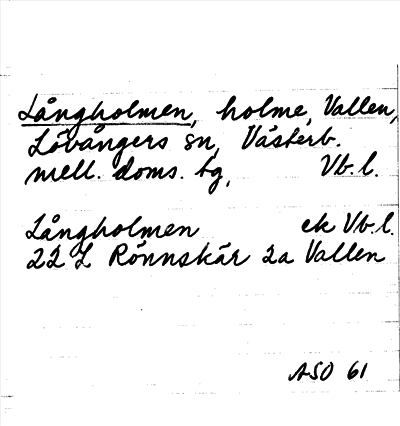 Långholmen, holme, Vallen,
Lövångers sn, Västerb.
mell. doms. tg, Vb. l.
Långholmen ek Vb. l.
22 L Rönnskär 2a Vallen
ASO 61